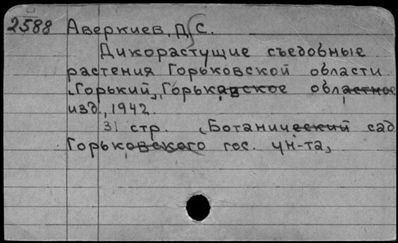 2588 Аверкиев, Д.С.
Дикорастущие съедобные
растения Горьковской области.
Горький, Горьковское областное
изд., 1942.
31 стр. (Ботанический сад
Горьковского гос. ун-та)